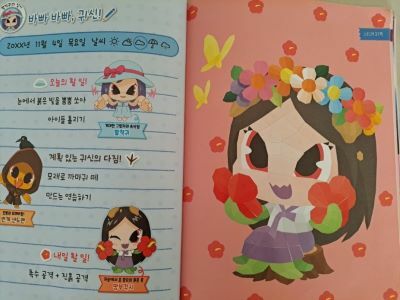 바빠 바빠, 귀신!
20XX년 11월 4일 목요일 날씨
오늘의 할 일!
눈에서 붉은 빛을 뿜뿜 쏘아
아이들 홀리기
계획 있는 귀신의 다짐!
모래로 까마귀 떼
만드는 연습하기
내일 할 일!
독수 공격 + 진흙 공격